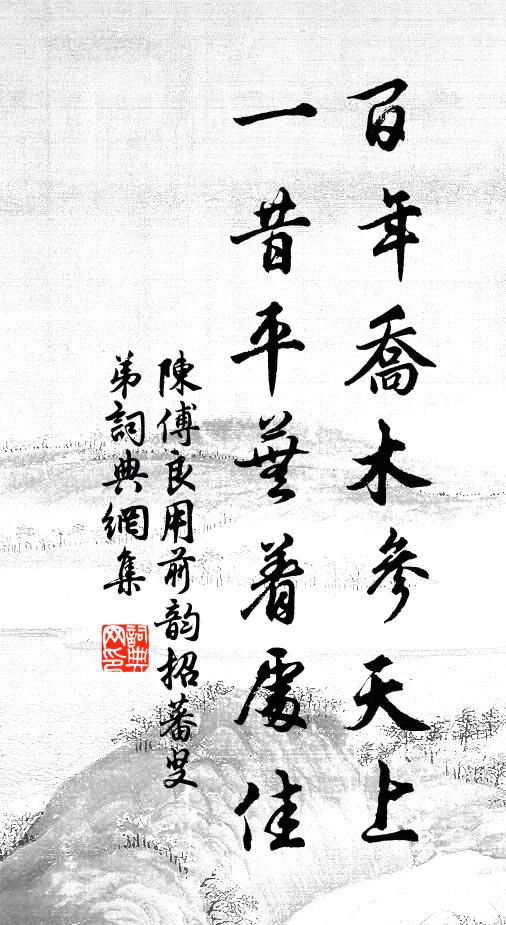 百年喬木參天上
一昔平蕪着處佳
陳傅良用前韵招蕃叟
弟詞典網集
詞典